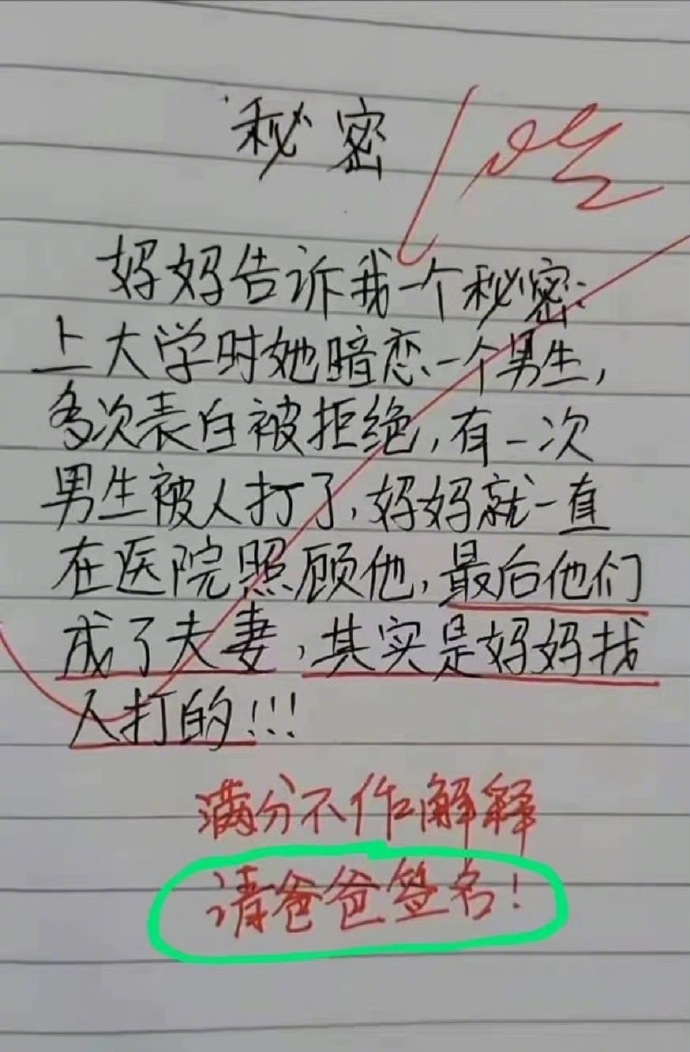 秘密
妈妈告诉我一个秘密:
上大学时她暗恋一个男生,
多次表白被拒绝,有一次
男生被人打了,妈妈就一直
在医院照顾他,最后他们
成了夫妻,其实是妈妈找
人打的!!!
满分不作解释
请爸爸签名!